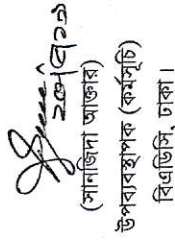 (সানজিদা আক্তার)
উপব্যবস্থাপক (কর্মসূচি)
বিএডিসি, ঢাকা।